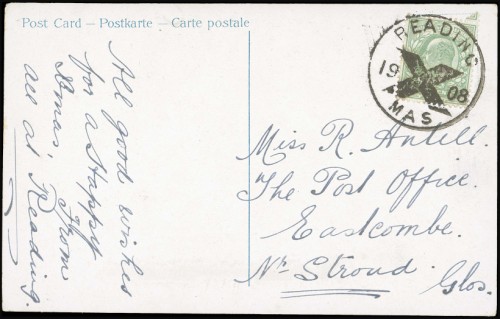 Post Card – Postkarte – Carte postale
All good wishes
for a Happy
Xmas, From
all at Reading.
READING
19 08
X
MAS
Miss R. Antill.
The Post Office.
Eastcombe.
Nr Stroud.
Glos.